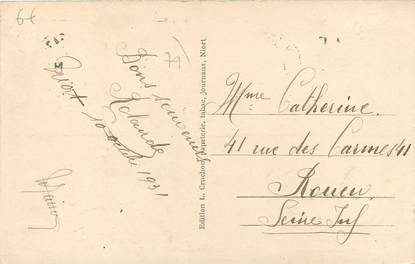 6€
79
Bons souvenirs
Rolande
Niort 10 1931
Edition L. Cruchon, papeterie, tabac, journaux, Niort
Mme Catherine.
41 rue des Carmes 41
Rouen
Seine Inf